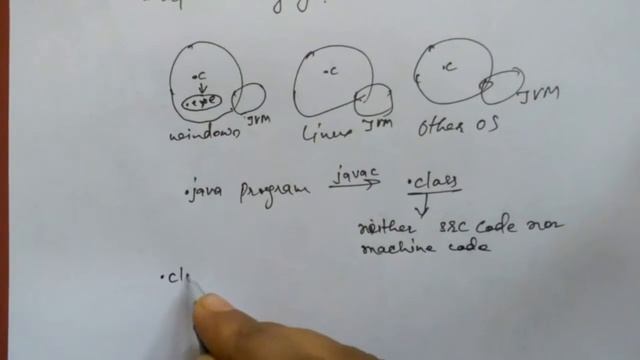 .c .c .c
.exe
JVM JVM JVM
windows Linux Other OS
.java program javac .class
neither src code nor
machine code
.cl